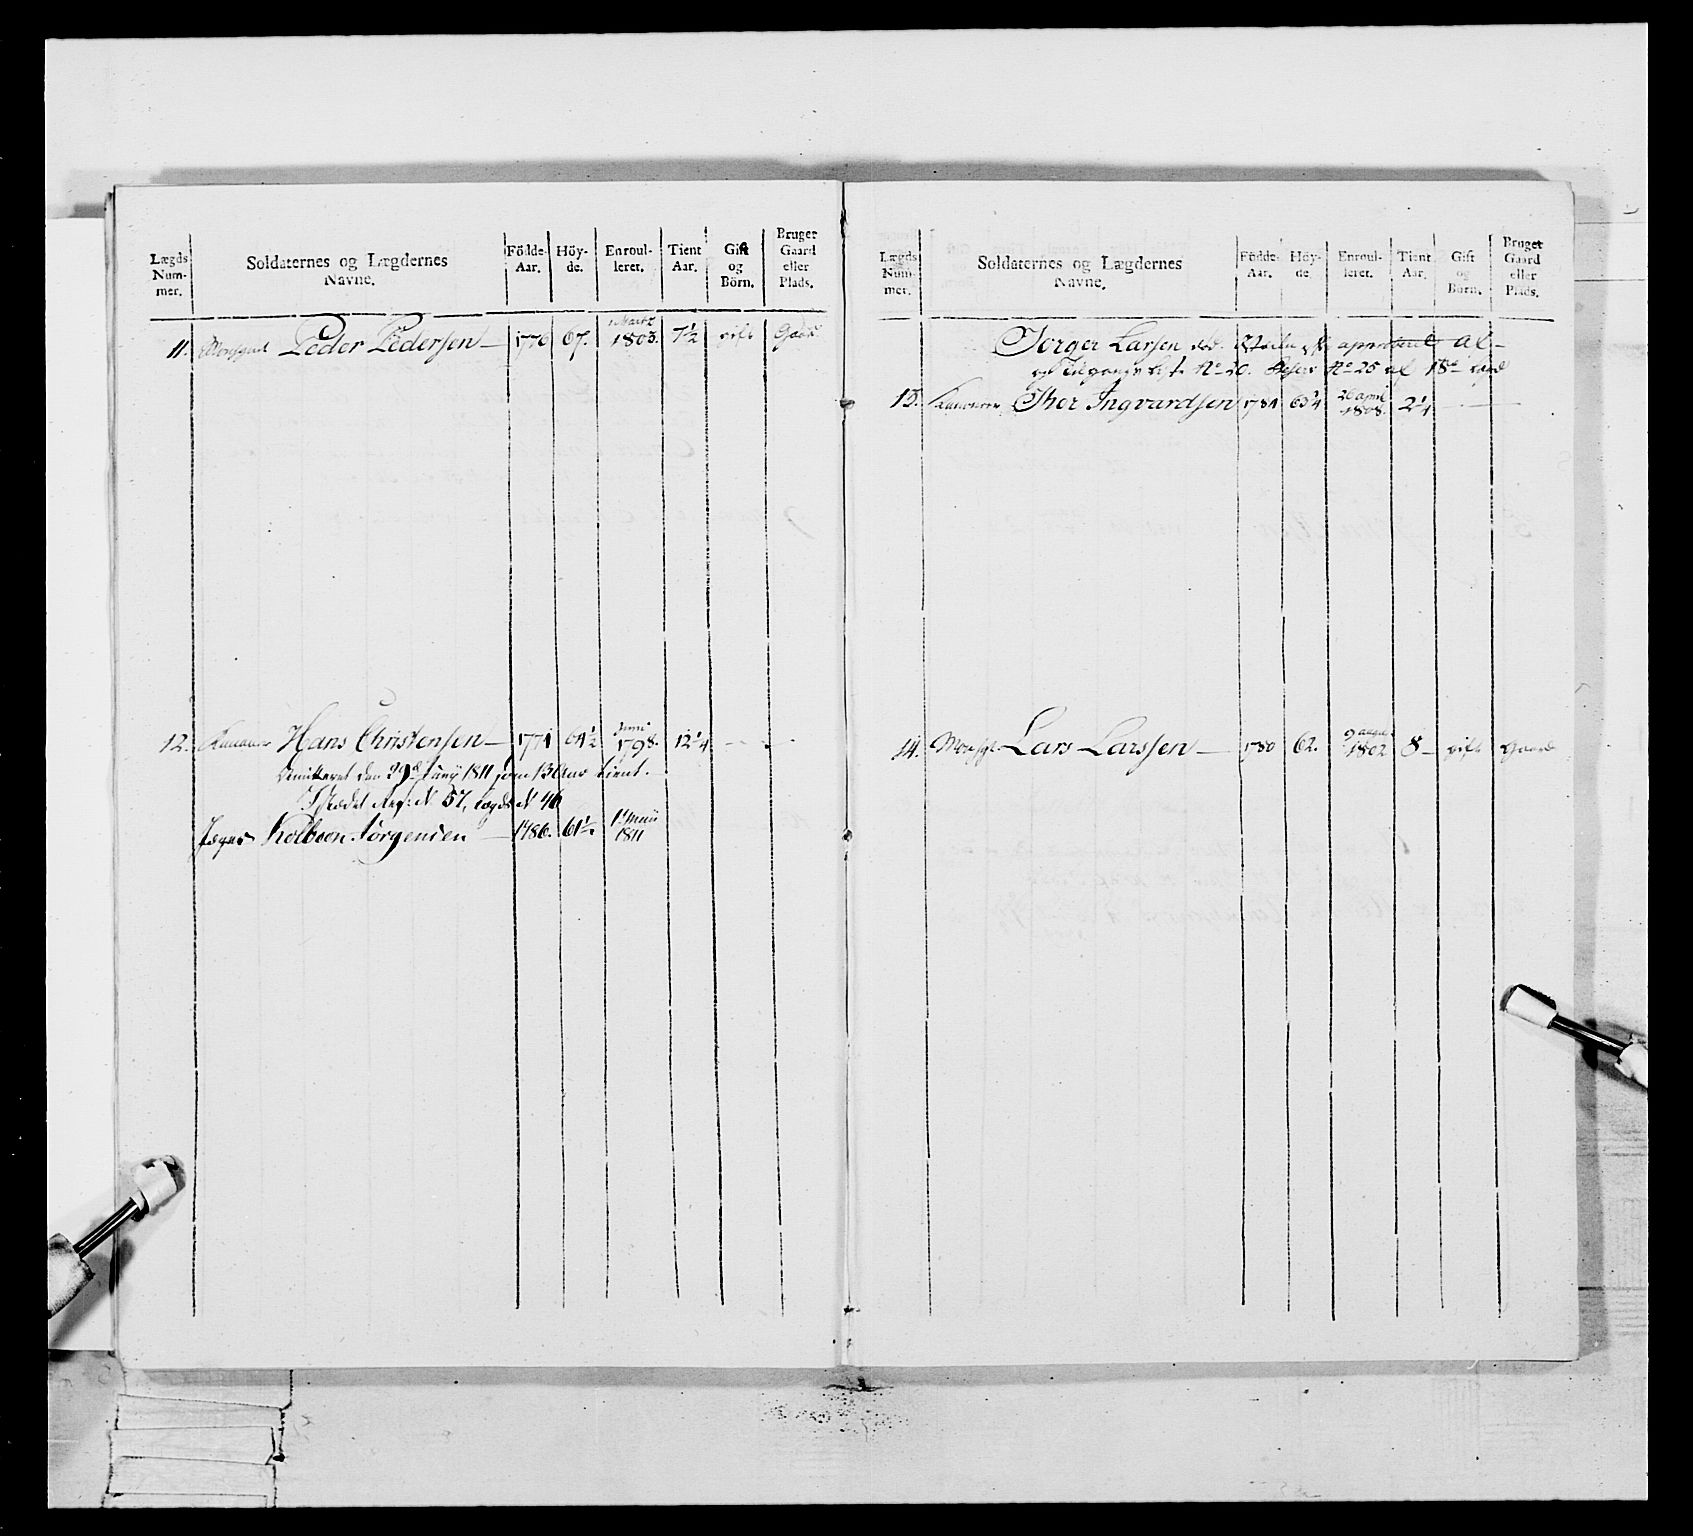 Lægds Num- mer. Soldaternes og Lægdernes Navne. Födde- Aar. Höy- de. Enroul- leret. Tient Aar. Gift og Börn. Bruger Gaard eller Plads.
11. Peder Pedersen 1776 67. Martz 1803. 7 1/2 gift Gaard
12. Hans Christensen 1771 64 1/2 Junii 1798. 12 1/4
den 29de Junii 1811 som 13 Aar tient.
I stædet Ref: N 57, Lægds N 46
Jæger Kolbeen Jørgensen 1786. 61 1/2 1 Junii 1811
Lægds Num- mer. Soldaternes og Lægdernes Navne. Födde- Aar. Höy- de. Enroul- leret. Tient Aar. Gift og Börn. Bruger Gaard eller Plads.
Jørger Larsen
No 20. No 25 af 18de
13. Ther Ingvardsen 1784 63 1/4 20 april 1808. 2 1/4
14. Lars Larssen 1780 62. 1802 8 gift Gaard